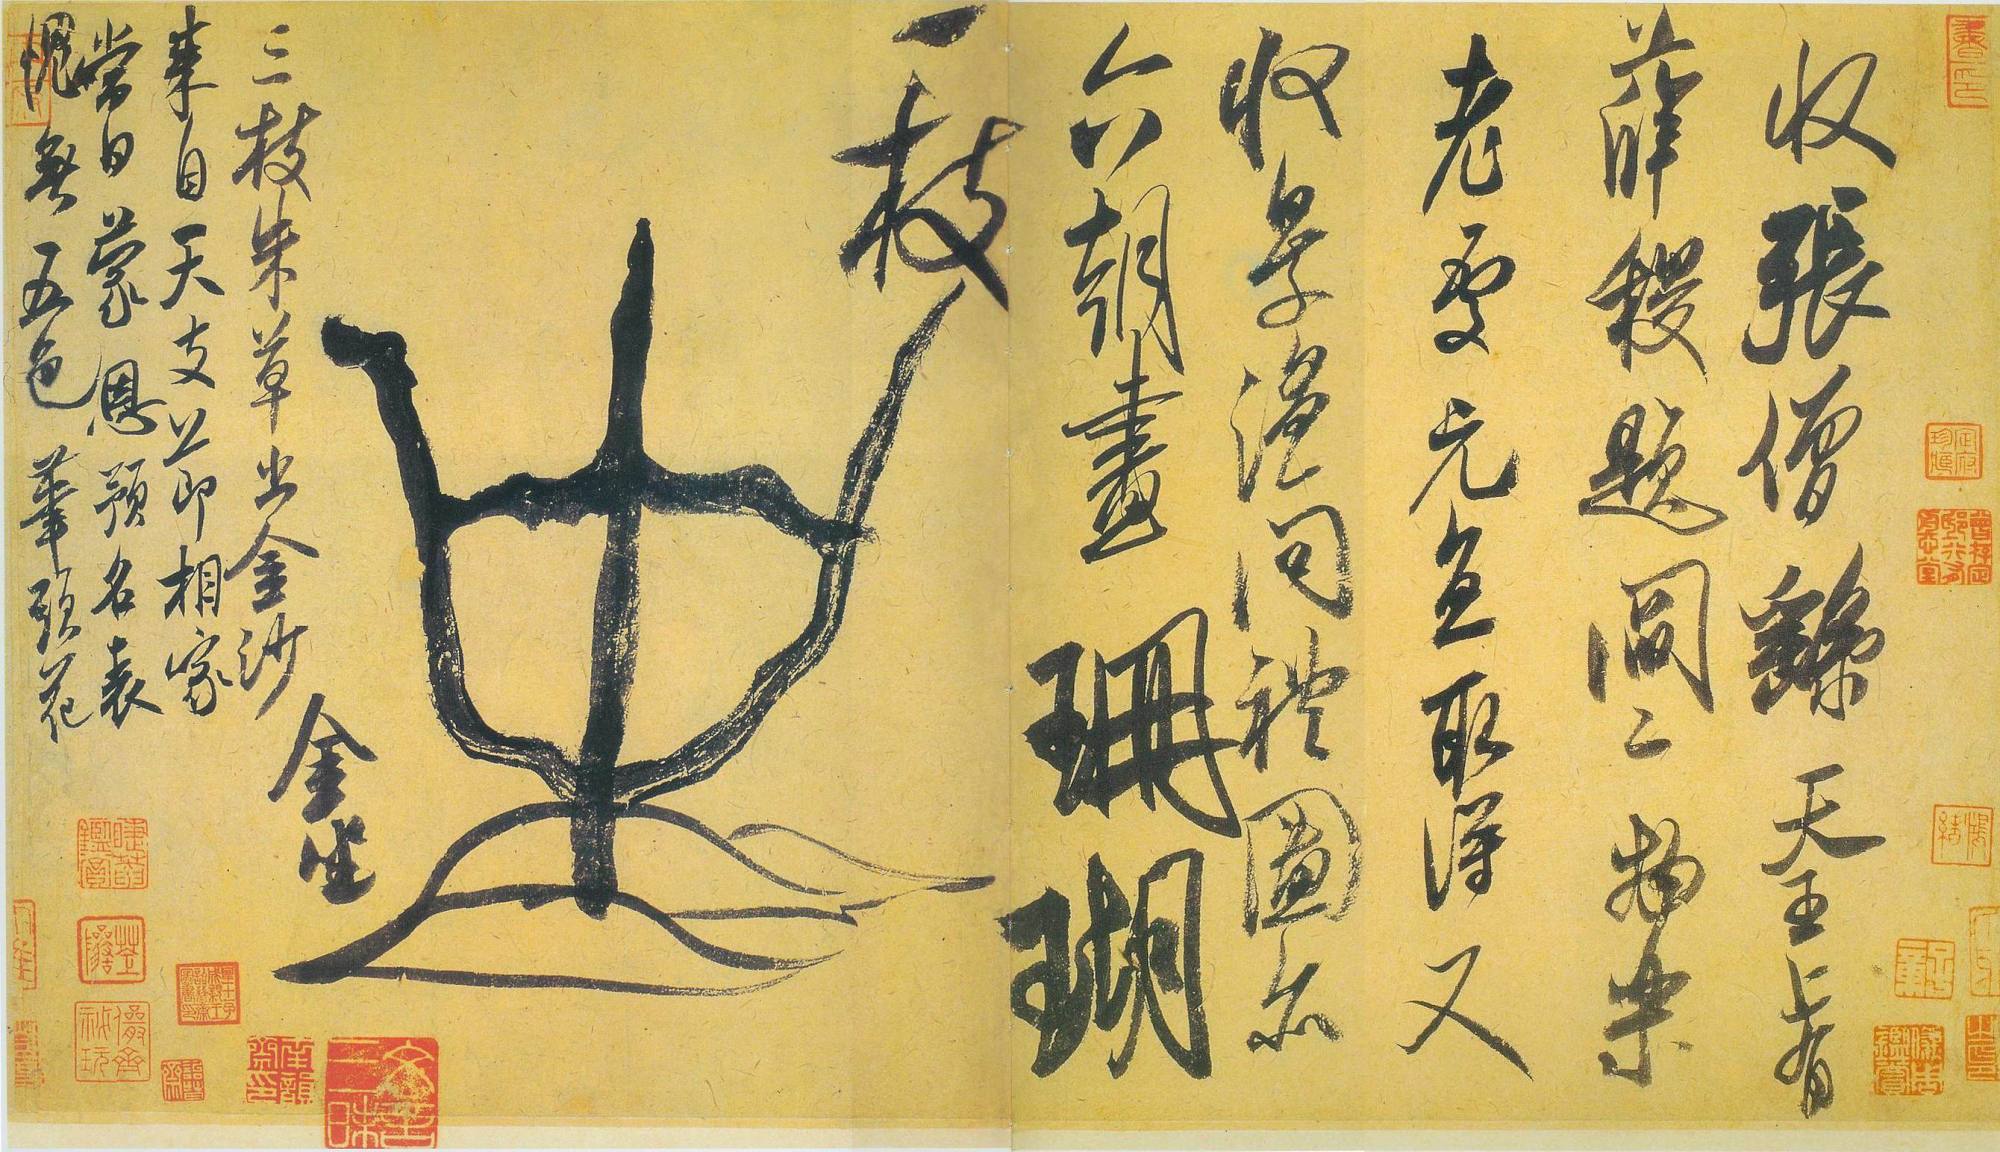 收張僧繇天王上有
薛稷題閻二物樂
老處元直取得又
收景溫問禮圖亦
六朝畫珊瑚
一枝
金坐
三枝朱草出金沙
来自天支節相家
當日蒙恩預名表
愧無五色筆頭花